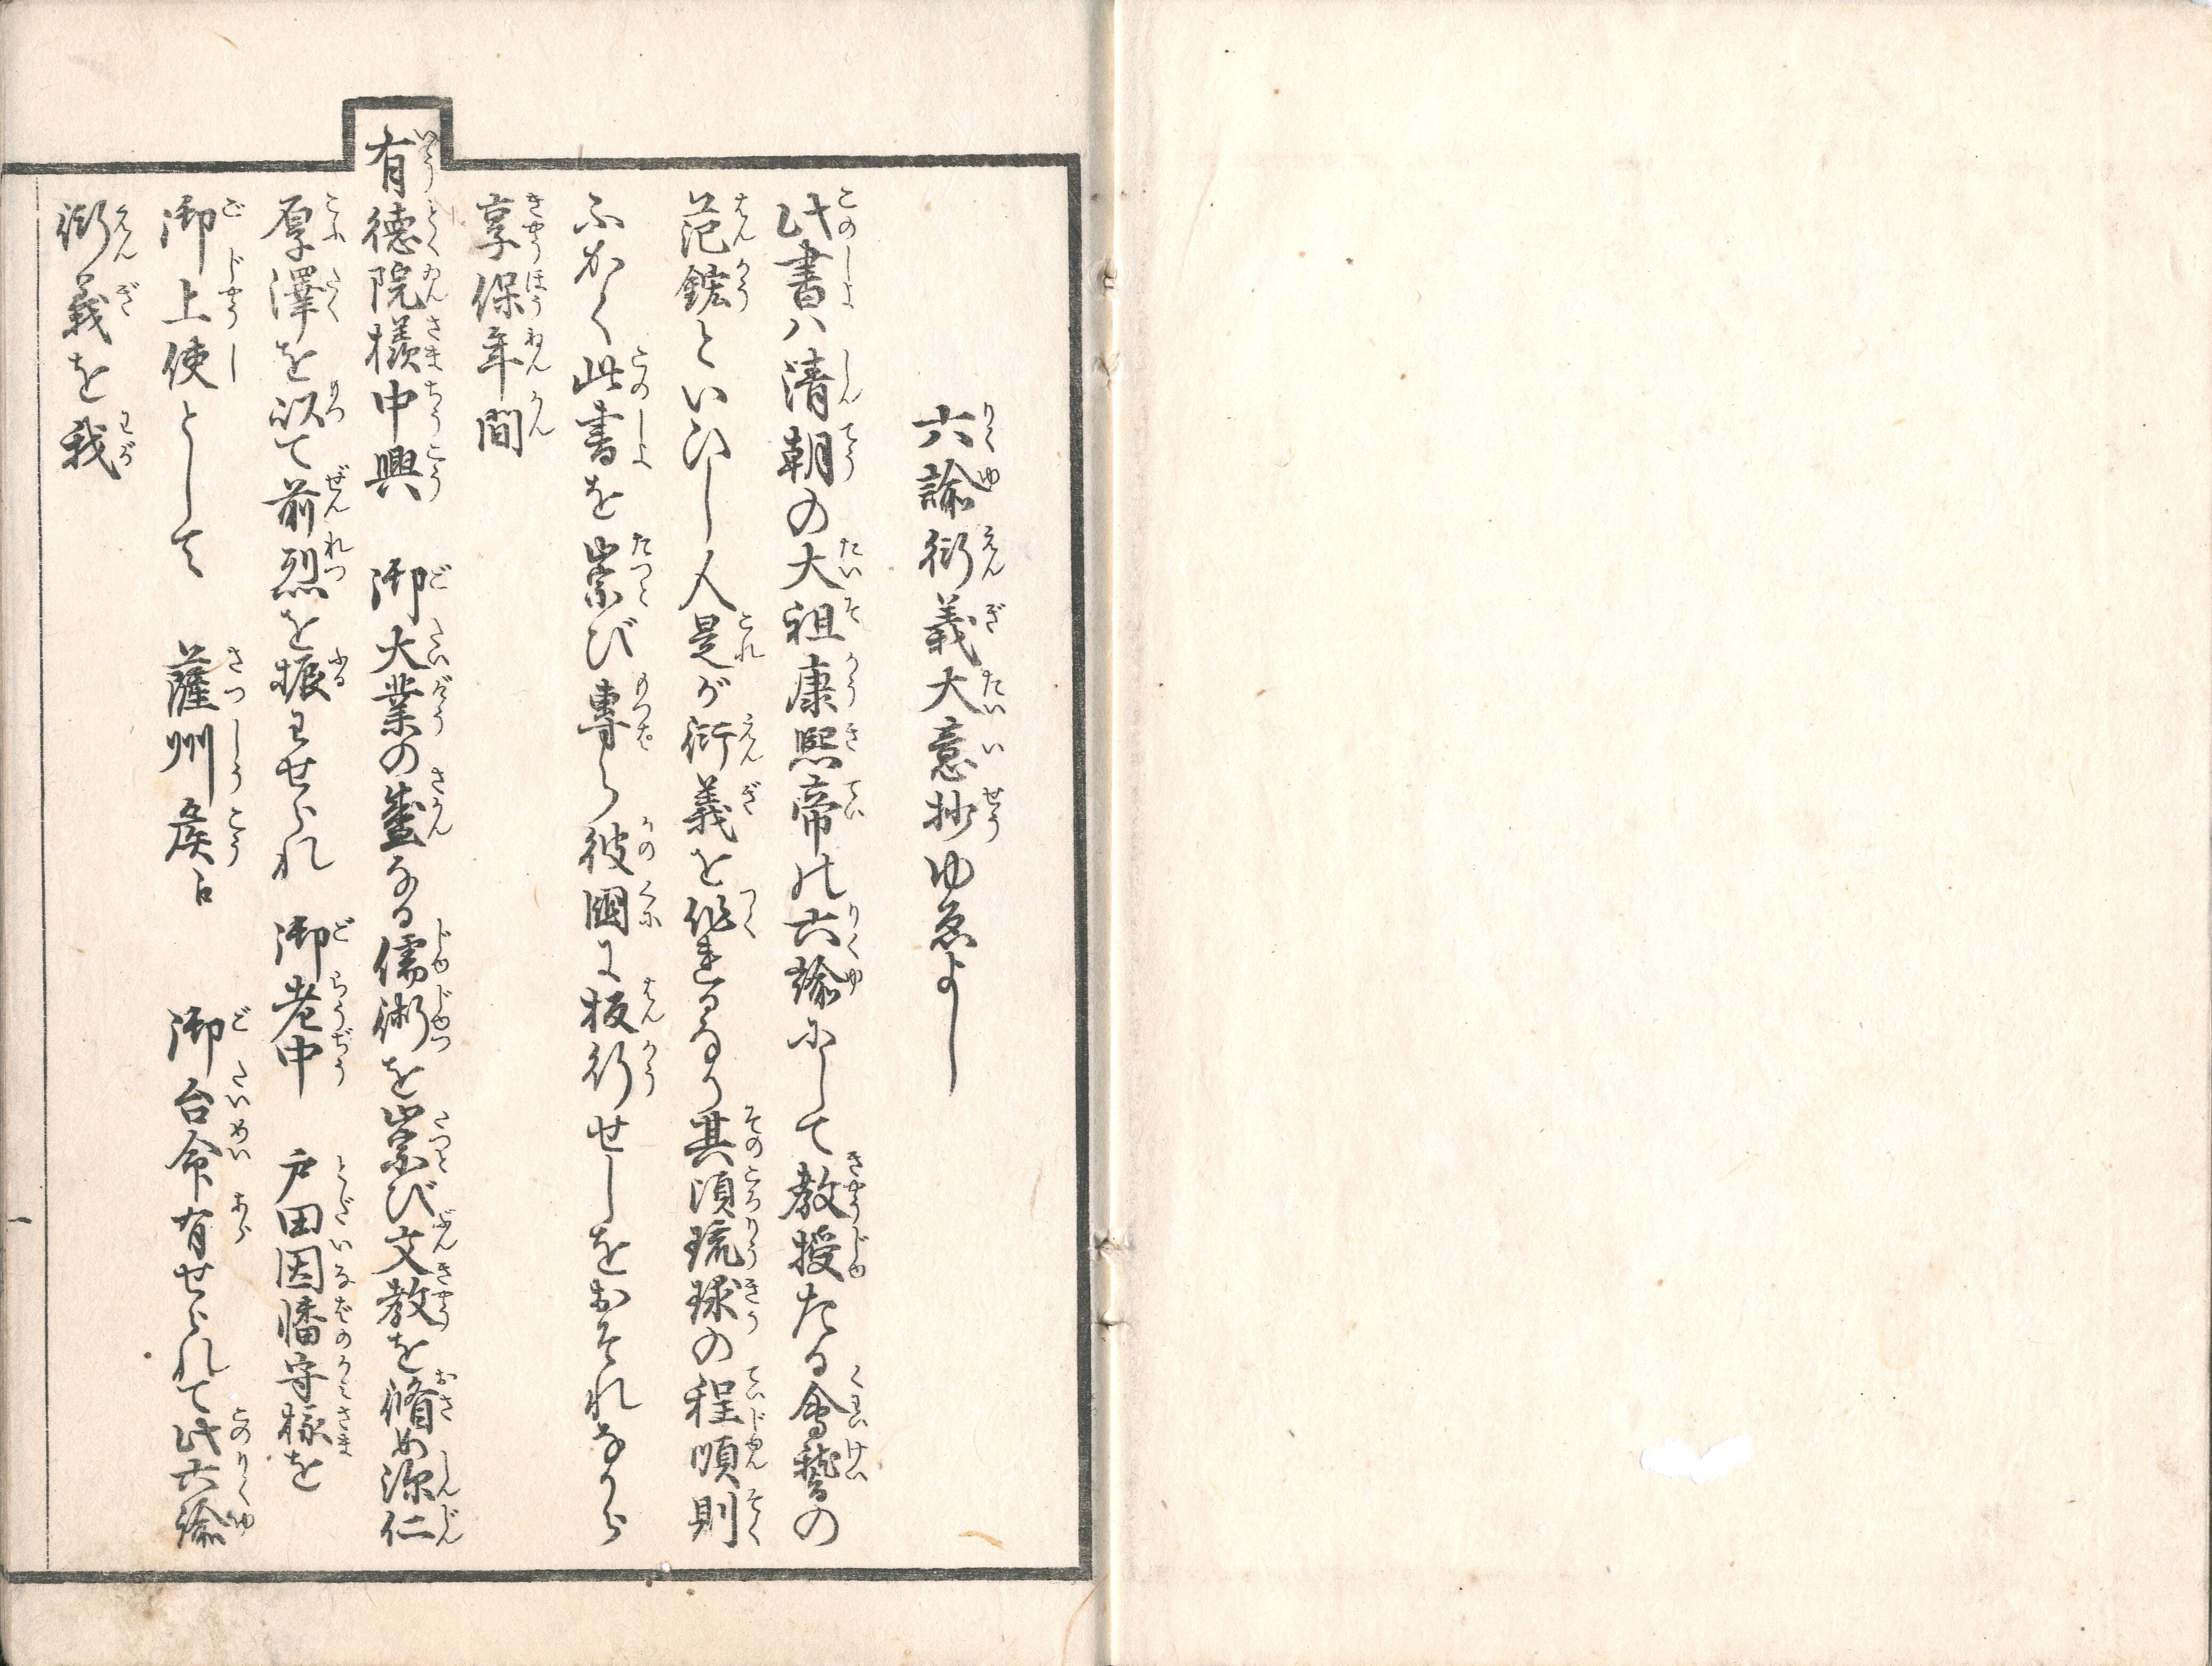 六諭衍義大意抄ゆゑよし
此書ハ清朝の大祖康熙帝の六諭にして教授たる會稽の
范鋐といひし人是が衍義を作れるなり其頃琉球の程順則
ふかく此書を崇び專ら彼國に板行せしをおそれながら
享保年間
有德院樣中興　御大業の盛なる儒術を崇び文教を脩め深仁
厚澤を以て前烈を振わせられ　御老中　戸田因幡守樣を
御上使として　薩州侯に　御台命有せられて此六諭
衍義を我
一